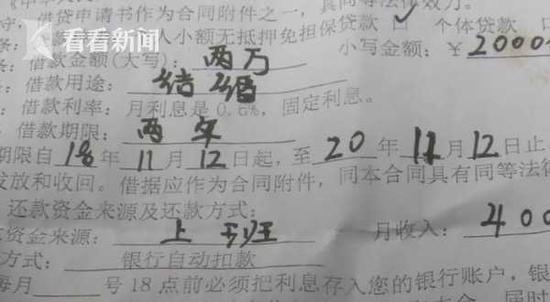 守：借贷申请书作为合同附件之一，具同等法律效力。
条：个人小额无抵押免担保贷款 ✓ 个体贷款 口
看看新闻
条：借款金额(大写)：两万 小写金额：¥2000
：借款用途：结婚
：借款利率：月利息是 0.6%，固定利息。
：借款期限：两年
期限自 18 年 11 月 12 日起，至 20 年 11 月 12 日止
发放和收回。借据应作为合同附件，同本合同具有同等法律
还款资金来源及还款方式：
资金来源：上班 月收入：400
方式：银行自动扣款
每月 号 18 点前必须把利息存入您的银行账户，银